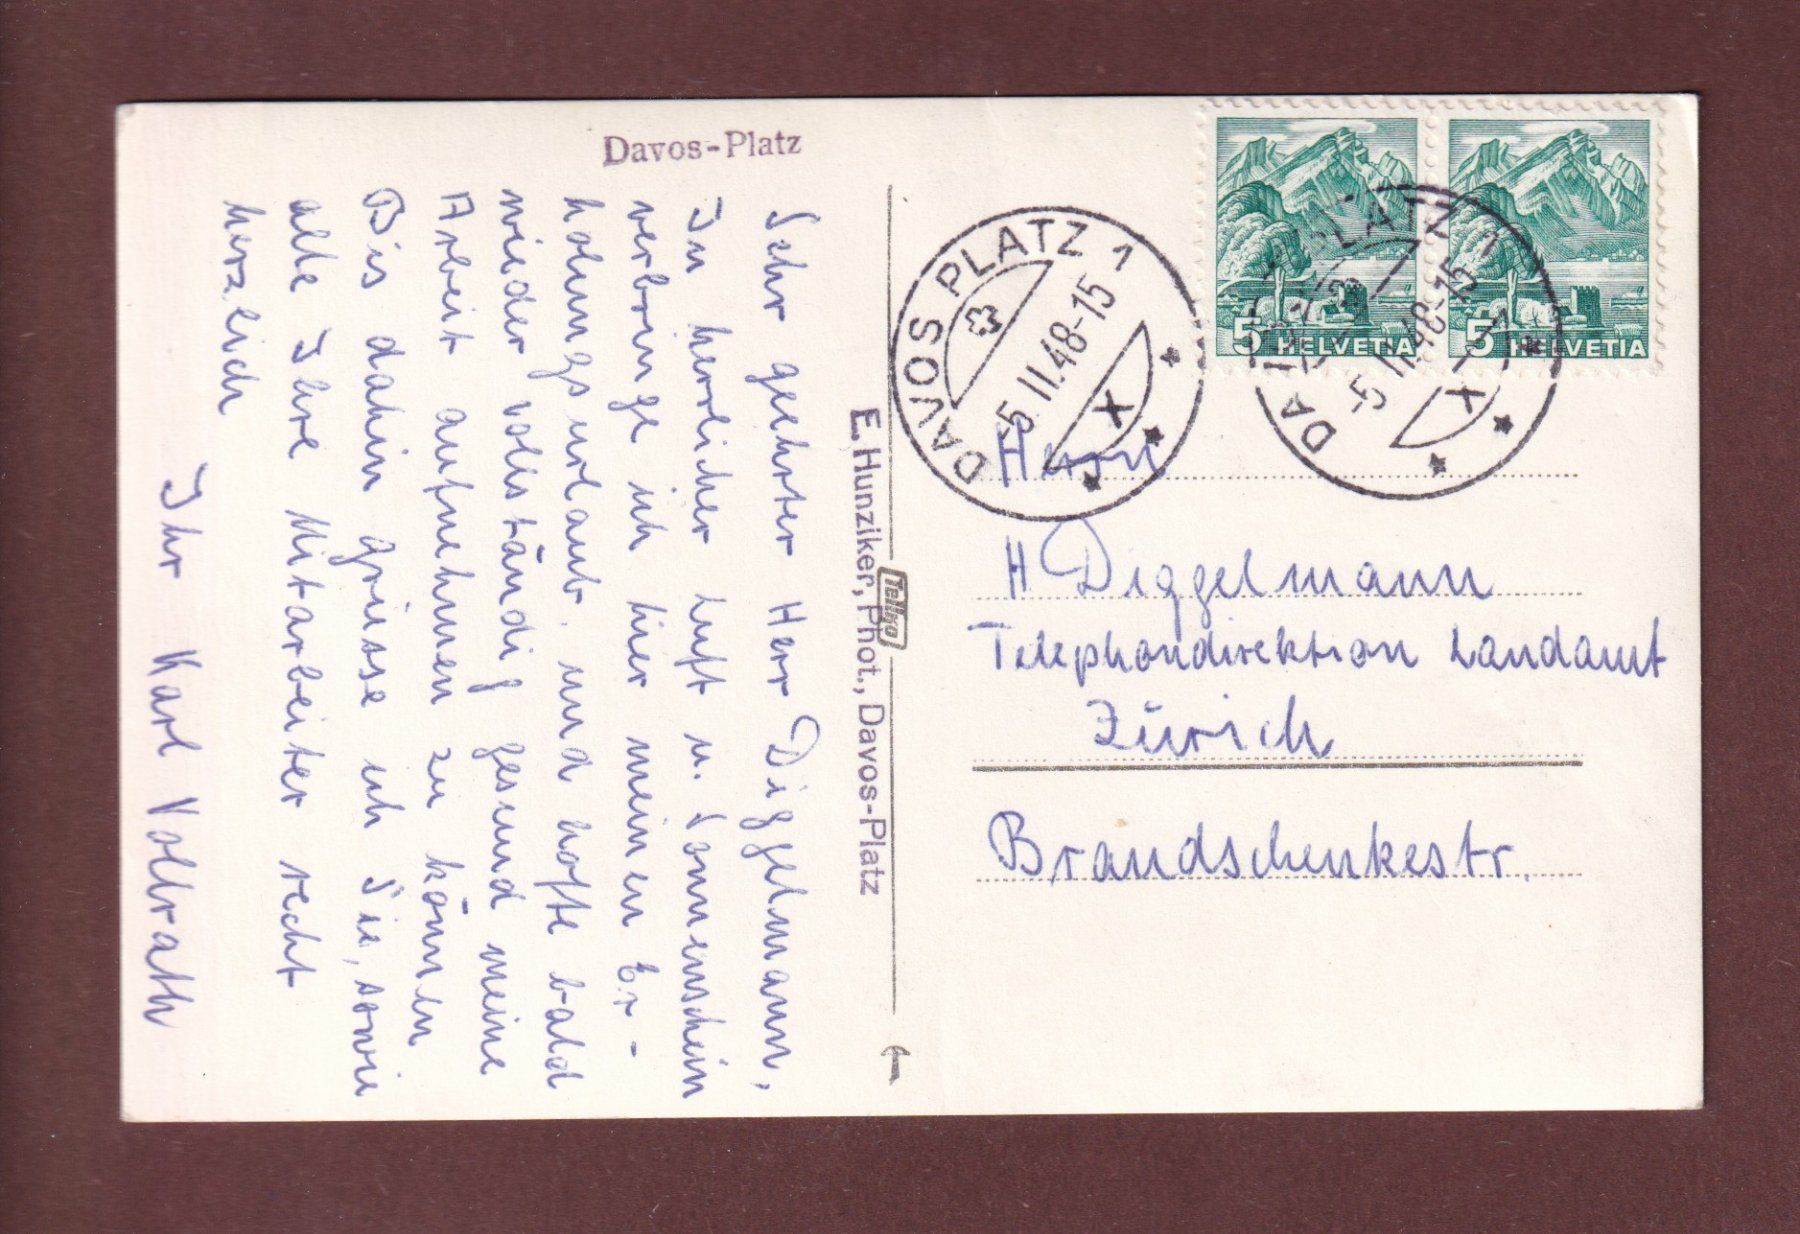 Davos-Platz
Sehr geehrter Herr Diggelmann,
In herrlicher Luft u. Sonnenschein
verbringe ich hier meinen Er-
holungsurlaub, und hoffe bald
wieder vollständig gesund meine
Arbeit aufnehmen zu können
Bis dahin grüsse ich Sie, sowie
alle Ihre Mitarbeiter recht
herzlich
Ihr Karl Vollrath
E. Hunziker, Phot., Davos-Platz
Telko
DAVOS PLATZ 1
-5.II.48-15
X
DAVOS PLATZ 1
-5.II.48-15
X
5 HELVETIA
5 HELVETIA
Herrn
H Diggelmann
Telephondirektion Landamt
Zürich
Brandschenkestr.